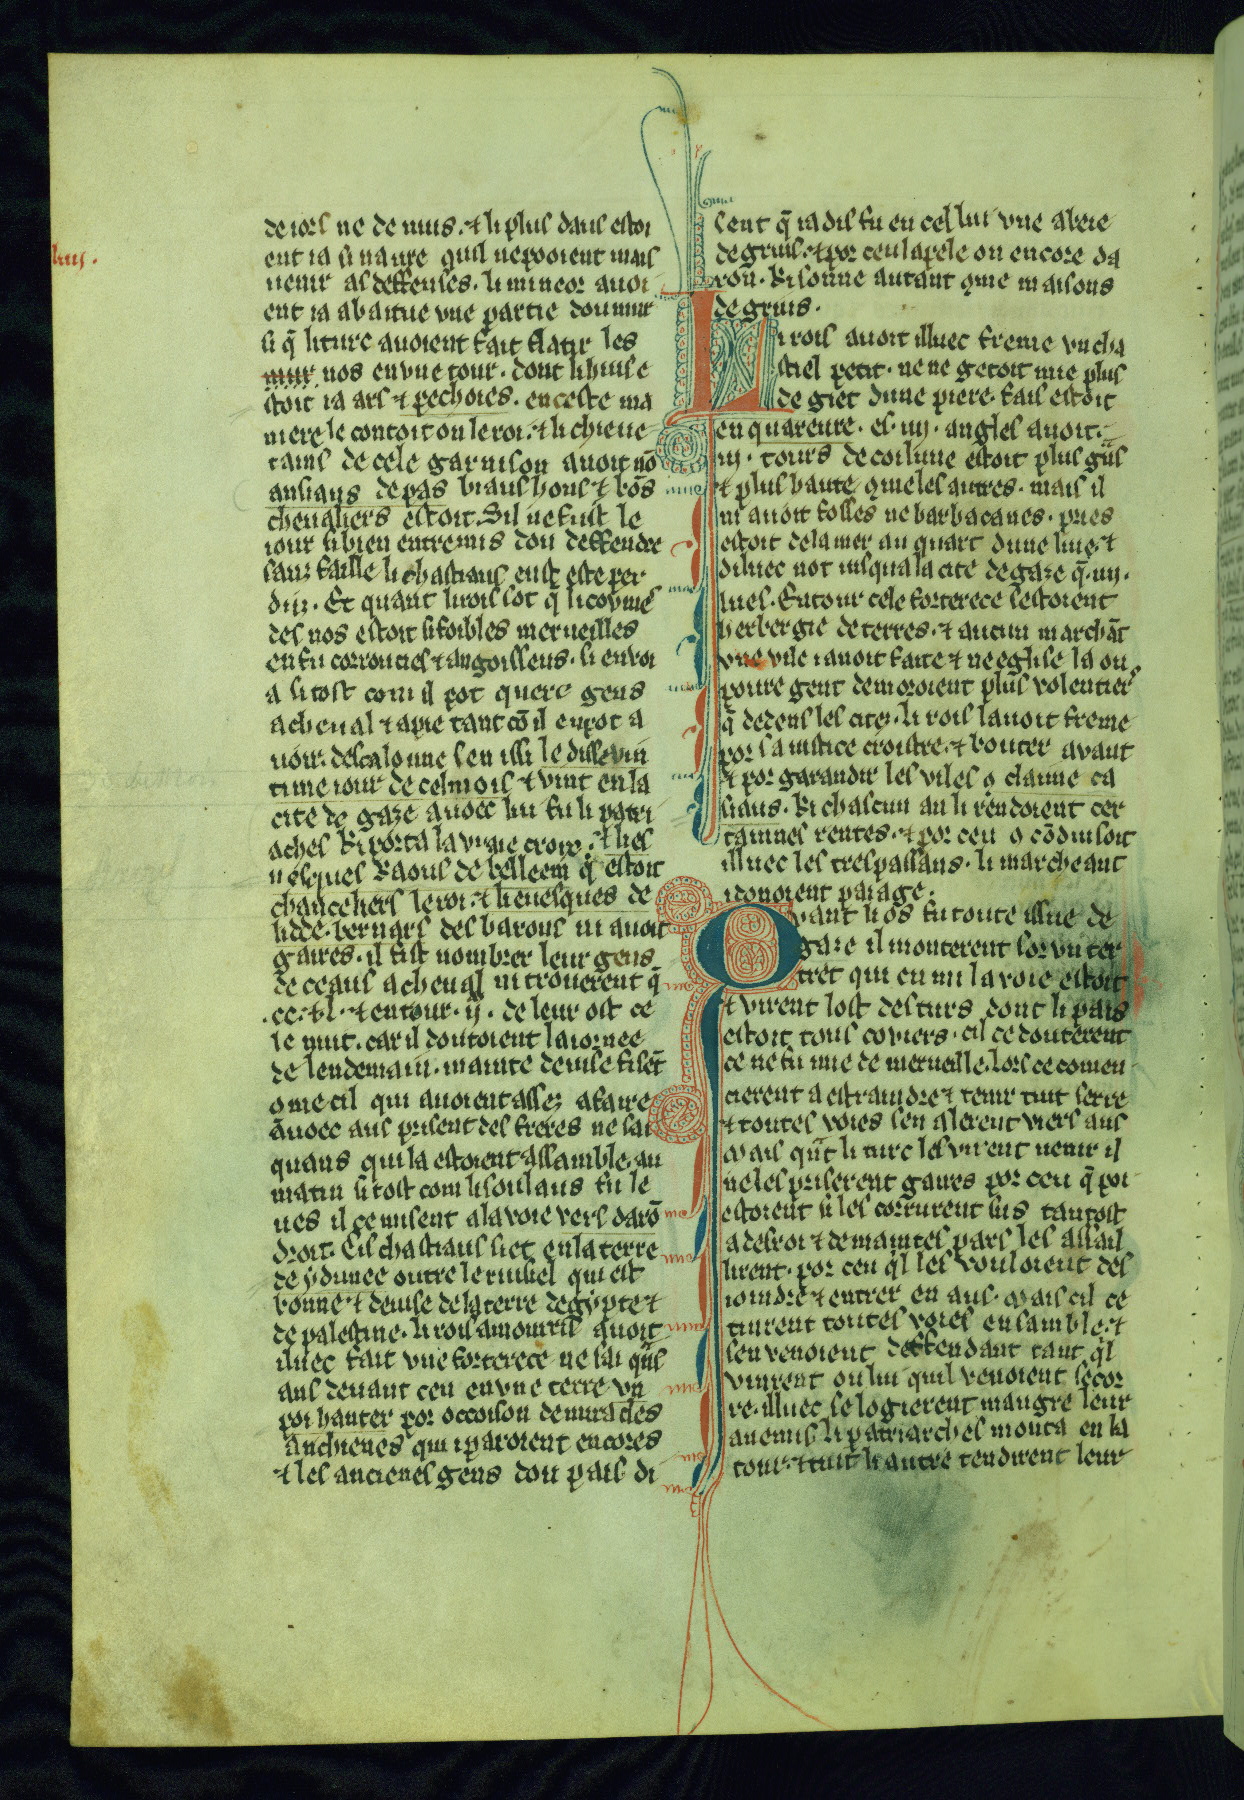 de iors ne de nuis. ⁊ li plus daus estoi
ent ia si naure quil ne pooient mais
uenir as deffenses. li mineor auoi
ent ia abatue vne partie dou mur
si q̃ li turc auoient fait flatir les
nos en vne tour. dont li huis e
stoit ia ars ⁊ pechoies. en ceste ma
niere le contoit on le roi. ⁊ li chieue
tains de cele garnison auoit nõ
ansiaus de pas biaus hons ⁊ bõs
cheualiers estoit. Sil ne fust le
iour si bien entremis dou deffendre
sanz faille li chastiaus eust este per
duz. Et quant li rois sot q̃ li couines
des nos estoit si foibles merueilles
en fu corroucies ⁊ angoisseus. si enuoi
a si tost com il pot quere gens
a cheual ⁊ a pie tant cõ il en pot a
uoir. descalonne sen issi le disseuin
time iour de cel mois ⁊ vint en la
cite de gaze auoec lui fu li patri
aches ki porta la vraie croix. ⁊ li es
uesques Raous de belleem q̃ estoit
chanceliers le roi. ⁊ li euesques de
lidde. bernars des barons ni auoit
gaires. il fist nombrer leur gens
de ceaus a cheual ni trouerent q̃
.cc. ⁊ .l. ⁊ entour .ij. de leur ost ce
le nuit. car il doutoient la iornee
de lendemain. mainte deuise fisẽt
ome cil qui auoient assez afaire
auoec aus prisent des freres ne sai
quans qui la estoient assamble. au
matin si tost com li solaus fu le
ues il ce misent a la voie vers darõ
droit. Cis chastiaus siet en la terre
de ydumee outre le ruisiel qui est
bonne ⁊ deuise de la terre degypte ⁊
de palestine. li rois amourris auoit
illuec fait vne forterece ne sai q̃ns
ans deuant ceu en vne terre vn
poi hauter por occoison de muracles
anchienes qui i paroient encores
⁊ les ancienes gens dou pais di
sent q̃ iadis fu en cel lui vne abeie
de gruis. ⁊ por ceu lapele on encore da
ron. ki sonne autant q̃me maisons
de gruis.
Li rois auoit illuec freme vn cha
stiel petit. ne ne getoit mie plus
de giet dune piere. fais estoit
en quareure. es .iiij. angles auoit
.iiij. tours de coi lune estoit plus gñs
⁊ plus haute q̃me les autres. mais il
ni auoit fosses ne barbacanes. pres
estoit de la mer au quart dune liue. ⁊
diluec not iusqua la cite de gaze q̃ .iiij.
liues. Entour cele forterece sestoient
herbergie de terres. ⁊ aucun marchãt
vne vile i auoit faite ⁊ ne eglise la ou
poure gent demoroient plus volentiers
q̃ dedens les cites. li rois lauoit freme
por sa iustice croistre. ⁊ bouter auant
⁊ por garandir les viles
siaus. ki chascun an li rendoient cer
tainnes rentes. ⁊ por ceu
illuec les trespassans. li marcheant
i donoient paiage.
Quant li os fu toute issue de
gaze il monterent sor vn ter
tret qui en mi la voie estoit
⁊ virent lost des turs dont li pais
estoit tous coviers. cil ce douterent
ce ne fu mie de merueille. lors ce comen
cierent a estraindre ⁊ tenir tuit serre
⁊ toutes voies sen alerent viers aus
Mais qũt li turc les virent uenir il
ne les priserent gaires por ceu q̃ poi
estoient si les corrurent sus tantost
a desroi ⁊ de maintes pars les assail
lirent. por ceu q̃l les vouloient des
ioindre ⁊ entrer en aus. Mais cil ce
tinrent toutes voies ensamble. ⁊
sen venoient deffendant tant q̃l
vinrent ou lui quil venoient secor
re. illuec se logierent maugre leur
anemis. li patriarches monta en la
tour. ⁊ tuit li autre tendirent leur